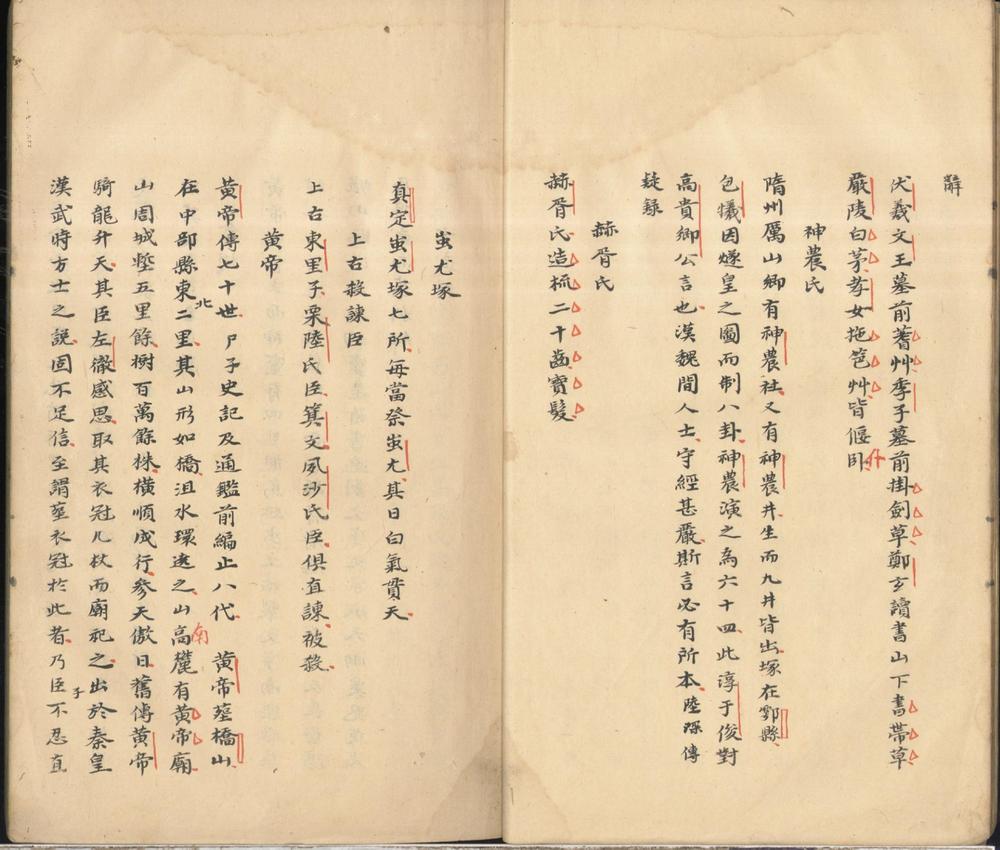 辭
伏羲文王墓前蓍艸季子墓前掛劍草鄭玄讀書山下書帶草
嚴陵白茅孝女拖笆艸皆偃卧
神農氏
隋州厲山鄉有神農社又有神農井生而九井皆出塚在酃縣
包犧因燧皇之圖而制八卦神農演之為六十四此淳于俊對
高貴鄉公言也漢魏間人士守經甚嚴斯言必有所本陸深傳
疑錄
赫胥氏
赫胥氏造梳二十齒寶髮
蚩尤塚
真定蚩尤塚七所每當祭蚩尤其日白氣貫天
上古殺諫臣
上古東里子栗陸氏臣箕文夙沙氏臣俱直諫被殺
黃帝
黃帝傳七十世尸子史記及通鑑前編止八代 黃帝塟橋山
在中部縣東北二里其山形如橋沮水環遶之山高南麓有黃帝廟
山周城塹五里餘樹百萬餘株橫順成行參天傲日舊傳黃帝
騎龍升天其臣左徹感思取其衣冠几杖而廟祀之出於秦皇
漢武時方士之說固不足信至謂塟衣冠於此者乃臣子不忍直